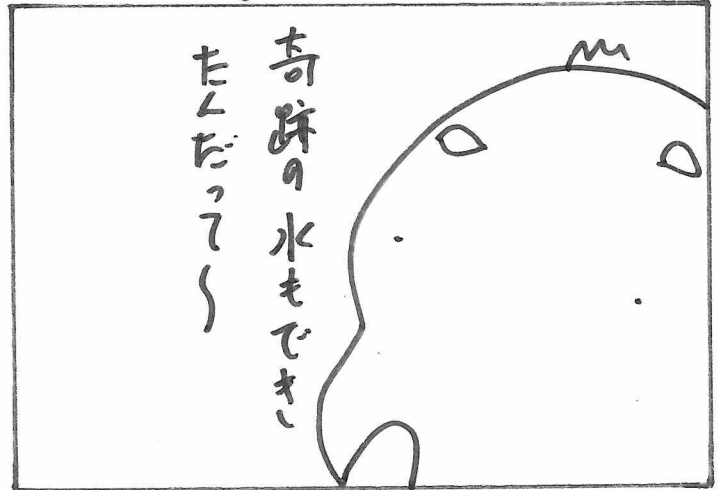 奇跡の水もでき
たんだって〜